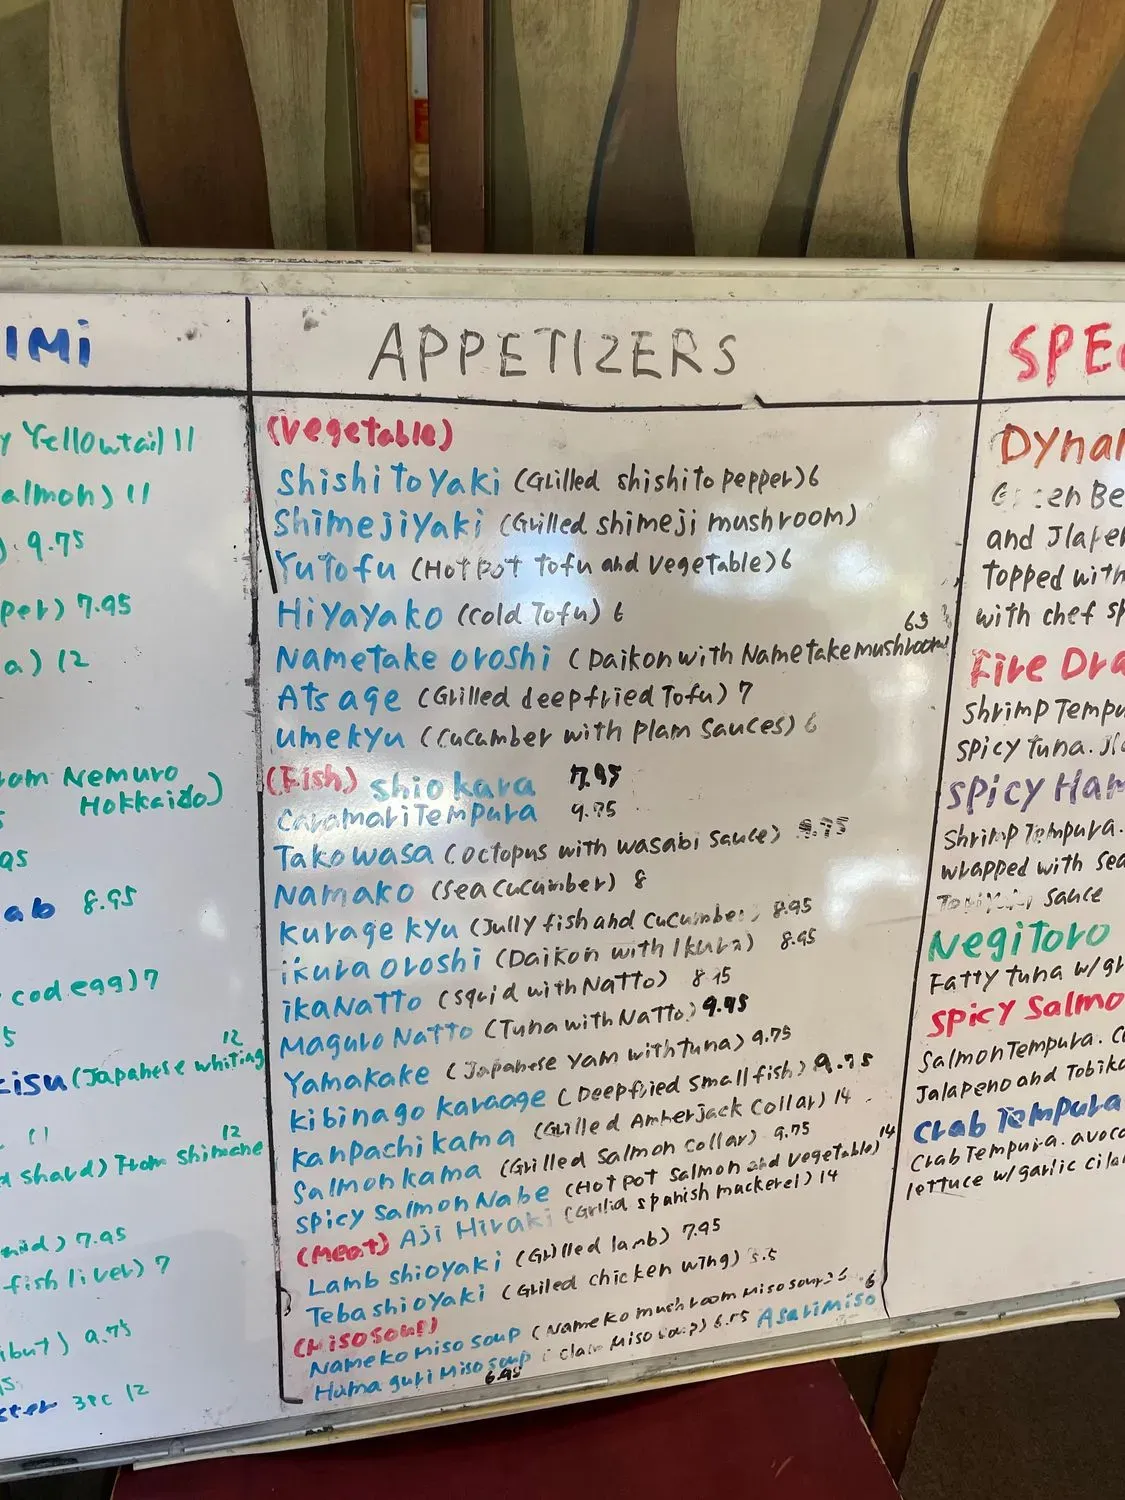 IMI
Yellowtail 11
almon) 11
9.75
per) 7.95
a) 12
Nemuro
Hokkaido)
95
ab 8.95
cod egg) 7
5
12
kisu (Japanese whiting
11
12
shard) From Shimane
7.95
fish liver) 7
ibut) 9.75
ster 3PC 12
APPETIZERS
(Vegetable)
Shishitoyaki (Grilled shishito pepper) 6
Shimejiyaki (Grilled shimeji mushroom)
Yutofu (Hot pot tofu and vegetable) 6
Hiyayako (cold Tofu) 6
Nametake oroshi (Daikon with Nametake mushroom)
Atsage (Grilled deepfried Tofu) 7
umekyu (cucumber with Plam Sauces) 6
(Fish) shiokara 7.95
CaramariTempura 9.75
Takowasa (octopus with wasabi sauce) 9.75
Namako (sea cucumber) 8
Kurage kyu (Jully fish and cucumber) 8.95
ikura oroshi (Daikon with Ikura) 8.95
ikaNatto (squid with Natto)
Maguro Natto (Tuna with Natto) 9.95
Yamakake (Japanese Yam with tuna) 9.75
Kibinago karaage (Deepfried small fish) 9.75
Kanpachi kama (Grilled Amberjack Collar) 14
Salmon kama (Grilled Salmon collar) 9.75
Spicy Salmon Nabe (Hot pot Salmon and vegetable) 14
(Meat) Aji Hiraki (Grilld spanish mackerel) 14
Lamb shioyaki (Grilled lamb) 7.95
Tebashioyaki (Grilled chicken wing)
(Misosoup)
Nameko miso soup (Nameko mushroom Miso soup) 6
Hamaguri Miso soup (clam Miso soup) Asari miso 6
6.95
SPE
Dyna
Green Be
and Jlape
Topped with
with chef sp
Fire Dra
shrimp Tempu
spicy tuna.
Spicy Ham
Shrimp Tempura.
wrapped with sea
Sauce
Negitoro
Fatty tuna w/gr
Spicy Salmo
Salmon Tempura. C
Jalapeno and Tobik
Crab Tempura
Crab Tempura. avoca
lettuce w/garlic cila